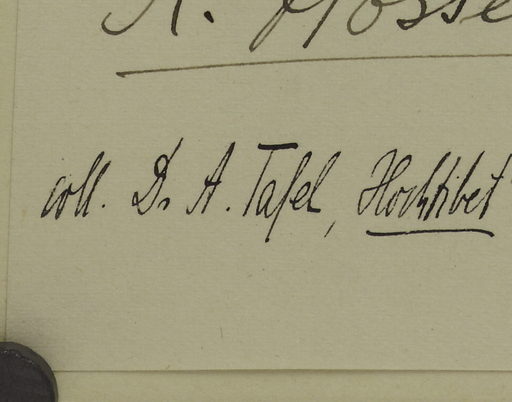 coll. Dr A. Tafel, Hochtibet